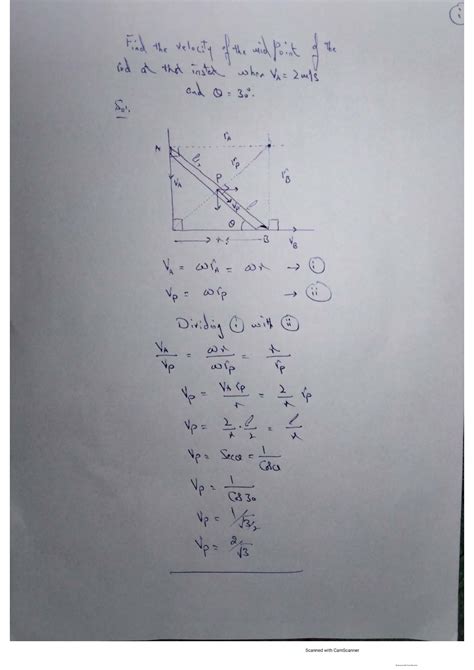 ii
Find the velocity of the mid point of the
rod at that instat when VA = 2 m/s
and θ = 30°.
Sol:
rA
A
l
rp
P
rB
VA
l
θ
x
B
VB
VA = ωrA = ωx → i
Vp = ωrp → ii
Dividing i with ii
VA/Vp = ωx/ωrp = x/rp
Vp = VA rp/x = 2/x rp
Vp = 2/x · l/2 = l/x
Vp = Secθ = 1/Cosθ
Vp = 1/Cos 30
Vp = 1/√3/2
Vp = 2/√3
Scanned with CamScanner